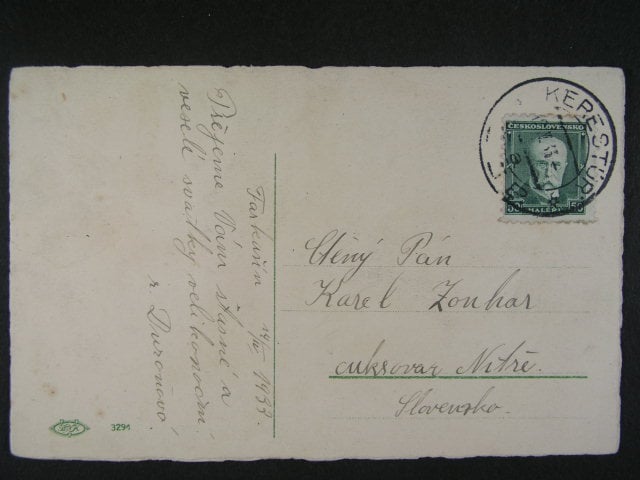 Farkašin 14/IV 1933.
Přejeme Vám šťasné a
veselé svátky velikonoční!
r. Duronovo!
KERESTÚR
ČESKOSLOVENSKO
50 HALÉŘŮ 50
Ctěný Pán
Karel Zouhar
cukrovar Nitře.
Slovensko.
3291